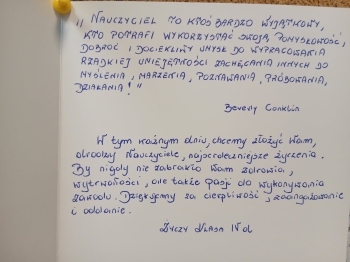 „Nauczyciel to ktoś bardzo wyjątkowy,
kto potrafi wykorzystać swoją pomysłowość,
dobroć i dociekliwy umysł do wypracowania
rzadkiej umiejętności zachęcania innych do
myślenia, marzenia, poznawania, próbowania,
działania!"
Beverly Conklin
W tym ważnym dniu, chcemy złożyć Wam,
drodzy Nauczyciele, najserdeczniejsze życzenia.
By nigdy nie zabrakło Wam zdrowia,
wytrwałości, ale także pasji do wykonywania
zawodu. Dziękujemy za cierpliwość, zaangażowanie
i oddanie.
Życzy klasa IV d